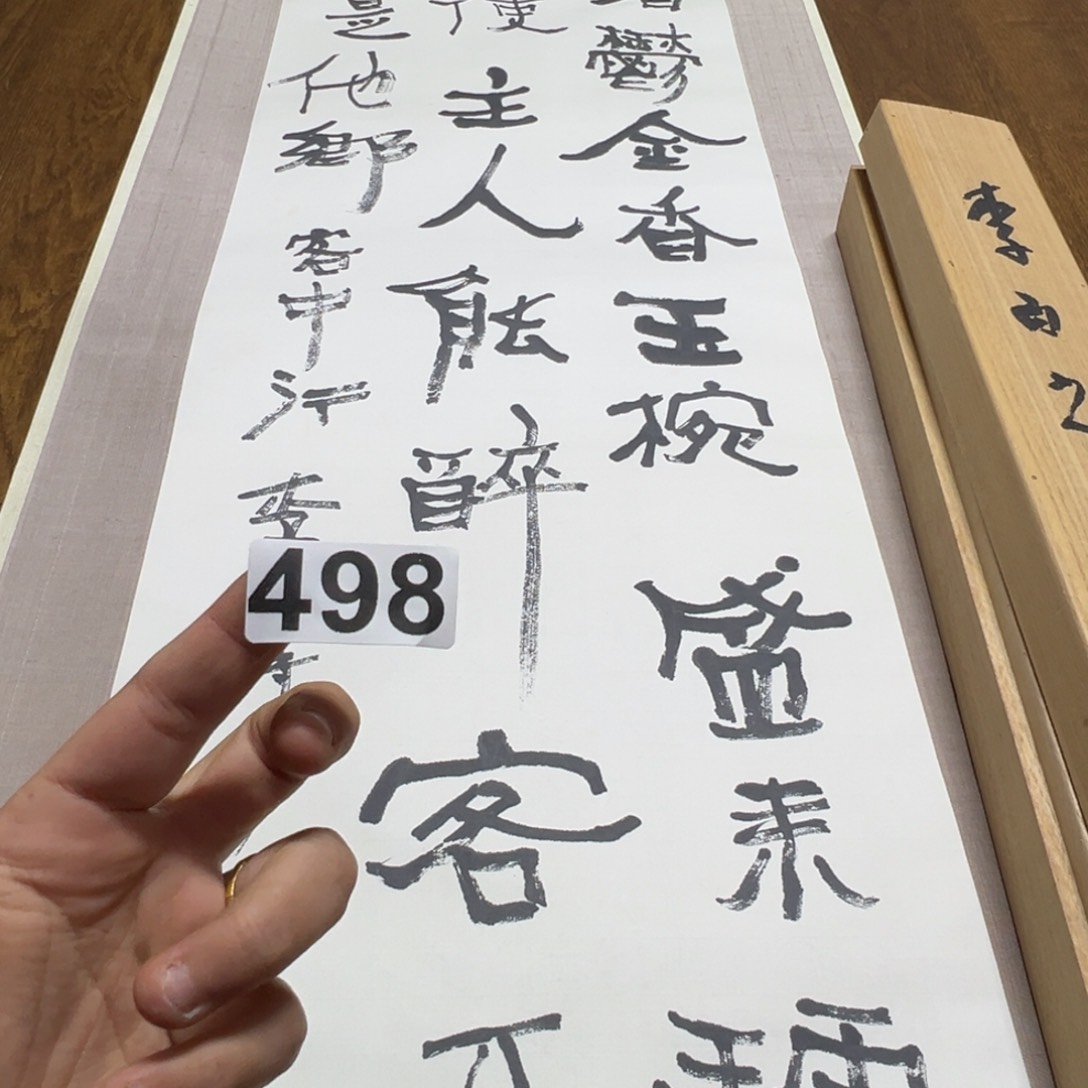 鬱金香玉椀盛来
使主人能醉客不
是他鄉 客中行 李
498
李白